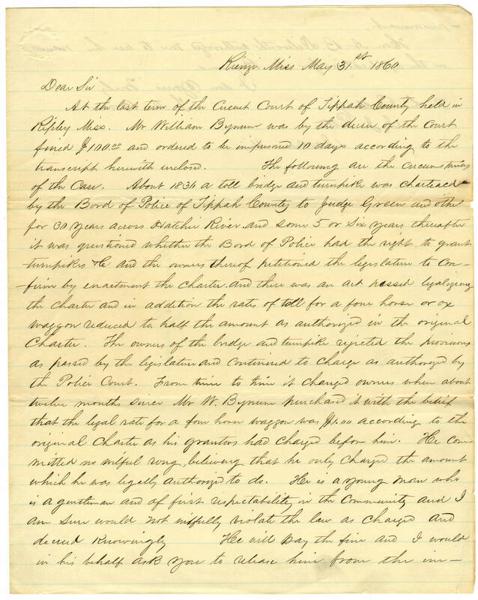 Rienzi Miss May 31st 1860
Dear Sir
At the last term of the Circuit Court of Tippah County held in
Ripley Miss. Mr William Bynum was by the decree of the Court
fined $100.00 and ordered to be imprisoned 10 days according to the
transcript herewith inclosed. The following are the circumstances
of the Case. About 1836 a toll bridge and turnpike was Chartered
by the Bord of Police of Tippah County to Judge Green and others
for 30 years across Hatchie River and some 5 or Six years thereafter
it was questioned whether the Bord of Police had the right to grant
turnpikes &C and the owners thereof petitioned the legislature to Con-
firm by enactment the Charter and there was an act passed legalizing
the Charter and in addition the rates of toll for a four horse or ox
waggon reduced to half the amount as authorized in the original
Charter. The owners of the bridge and turnpike rejected the provisions
as passed by the legislature and Continued to Charge as authorized by
the Police Court. From time to time it changed owners when about
twelve months since Mr W. Bynum purchased it with the belief
that the legal rate for a four horse waggon was $1.00 according to the
original Charter as his grantors had Charged before him. He com
mitted no wilful rong, believing that he only Charged the amount
which he was legally Authorized to do. He is a young man who
is a gentleman and of first respectability in the Community and I
am sure would not wilfully violate the law as Charged and
decreed Knowingly He will pay the fine and I would
in his behalf ask you to release him from the im-